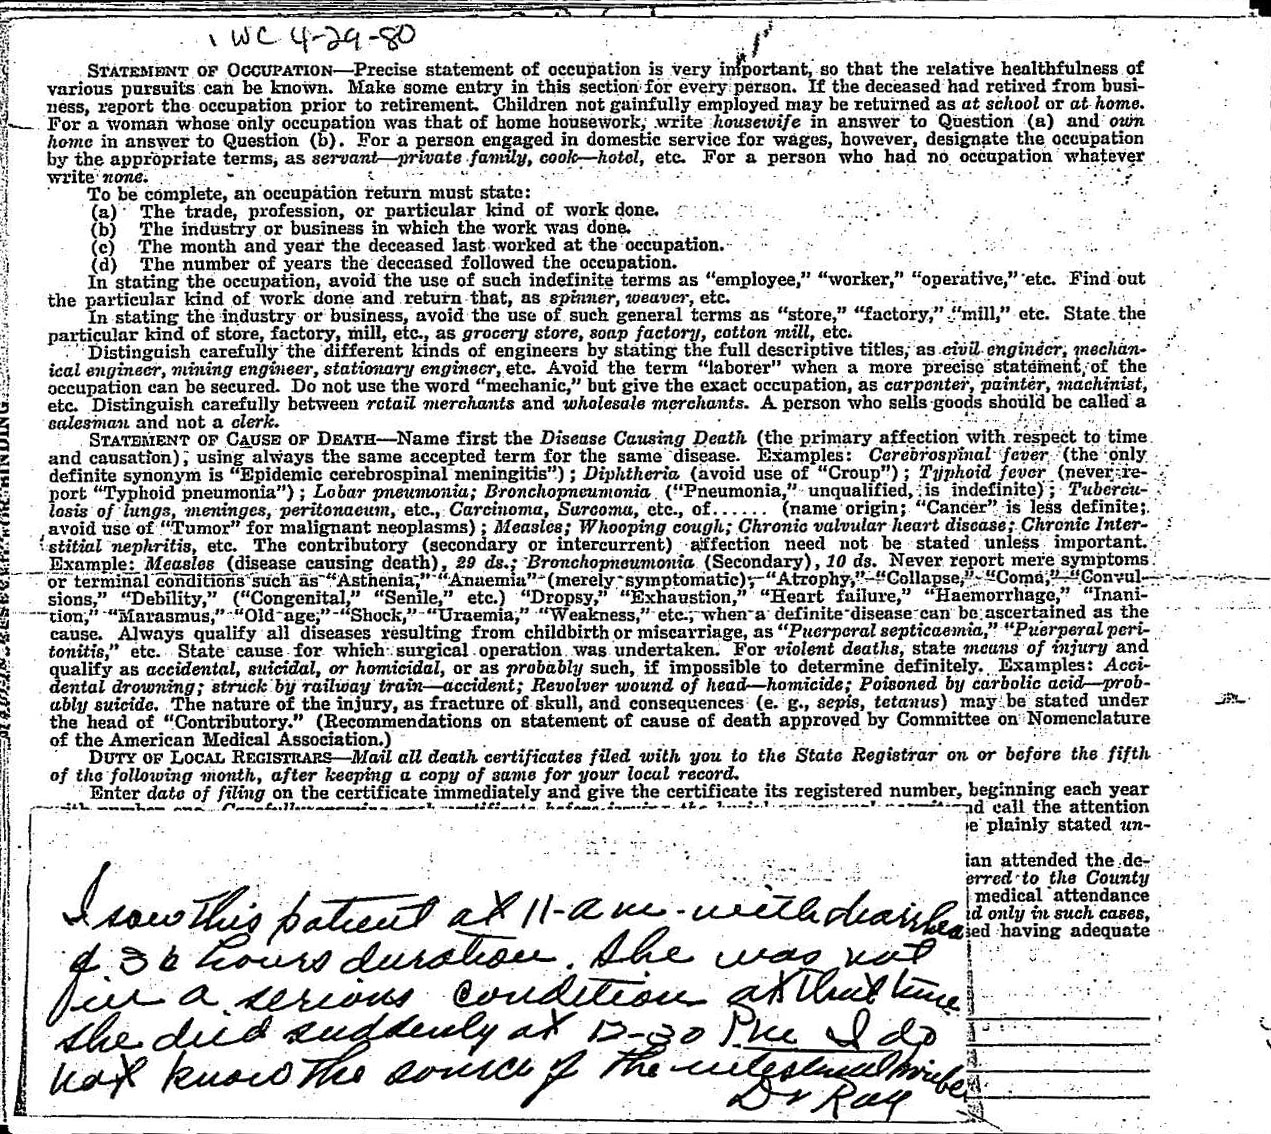 WC 4-29-80
STATEMENT OF OCCUPATION—Precise statement of occupation is very important, so that the relative healthfulness of
various pursuits can be known. Make some entry in this section for every person. If the deceased had retired from busi-
ness, report the occupation prior to retirement. Children not gainfully employed may be returned as at school or at home.
For a woman whose only occupation was that of home housework, write housewife in answer to Question (a) and own
home in answer to Question (b). For a person engaged in domestic service for wages, however, designate the occupation
by the appropriate terms, as servant—private family, cook—hotel, etc. For a person who had no occupation whatever
write none.
To be complete, an occupation return must state:
(a) The trade, profession, or particular kind of work done.
(b) The industry or business in which the work was done.
(c) The month and year the deceased last worked at the occupation.
(d) The number of years the deceased followed the occupation.
In stating the occupation, avoid the use of such indefinite terms as "employee," "worker," "operative," etc. Find out
the particular kind of work done and return that, as spinner, weaver, etc.
In stating the industry or business, avoid the use of such general terms as "store," "factory," "mill," etc. State the
particular kind of store, factory, mill, etc., as grocery store, soap factory, cotton mill, etc.
Distinguish carefully the different kinds of engineers by stating the full descriptive titles, as civil engineer, mechan-
ical engineer, mining engineer, stationary engineer, etc. Avoid the term "laborer" when a more precise statement of the
occupation can be secured. Do not use the word "mechanic," but give the exact occupation, as carpenter, painter, machinist,
etc. Distinguish carefully between retail merchants and wholesale merchants. A person who sells goods should be called a
salesman and not a clerk.
STATEMENT OF CAUSE OF DEATH—Name first the Disease Causing Death (the primary affection with respect to time
and causation), using always the same accepted term for the same disease. Examples: Cerebrospinal fever (the only
definite synonym is "Epidemic cerebrospinal meningitis"); Diphtheria (avoid use of "Croup"); Typhoid fever (never re-
port "Typhoid pneumonia"); Lobar pneumonia; Bronchopneumonia ("Pneumonia," unqualified, is indefinite); Tubercu-
losis of lungs, meninges, peritonaeum, etc., Carcinoma, Sarcoma, etc., of...... (name origin; "Cancer" is less definite;
avoid use of "Tumor" for malignant neoplasms); Measles; Whooping cough; Chronic valvular heart disease; Chronic Inter-
stitial nephritis, etc. The contributory (secondary or intercurrent) affection need not be stated unless important.
Example: Measles (disease causing death), 29 ds.; Bronchopneumonia (Secondary), 10 ds. Never report mere symptoms
or terminal conditions such as "Asthenia," "Anaemia" (merely symptomatic), "Atrophy," "Collapse," "Coma," "Convul-
sions," "Debility," ("Congenital," "Senile," etc.) "Dropsy," "Exhaustion," "Heart failure," "Haemorrhage," "Inani-
tion," "Marasmus," "Old age," "Shock," "Uraemia," "Weakness," etc., when a definite disease can be ascertained as the
cause. Always qualify all diseases resulting from childbirth or miscarriage, as "Puerperal septicaemia," "Puerperal peri-
tonitis," etc. State cause for which surgical operation was undertaken. For violent deaths, state means of injury and
qualify as accidental, suicidal, or homicidal, or as probably such, if impossible to determine definitely. Examples: Acci-
dental drowning; struck by railway train—accident; Revolver wound of head—homicide; Poisoned by carbolic acid—prob-
ably suicide. The nature of the injury, as fracture of skull, and consequences (e. g., sepis, tetanus) may be stated under
the head of "Contributory." (Recommendations on statement of cause of death approved by Committee on Nomenclature
of the American Medical Association.)
DUTY OF LOCAL REGISTRARS—Mail all death certificates filed with you to the State Registrar on or before the fifth
of the following month, after keeping a copy of same for your local record.
Enter date of filing on the certificate immediately and give the certificate its registered number, beginning each year
call the attention
plainly stated un-
attended the de-
to the County
medical attendance
only in such cases,
having adequate
I saw this patient at 11-am-with diarrhea
of 36 hours duration. She was not
in a serious condition at that time
she died suddenly at 12-30 Pm I do
not know the source of the intestinal trouble
Dr Ray